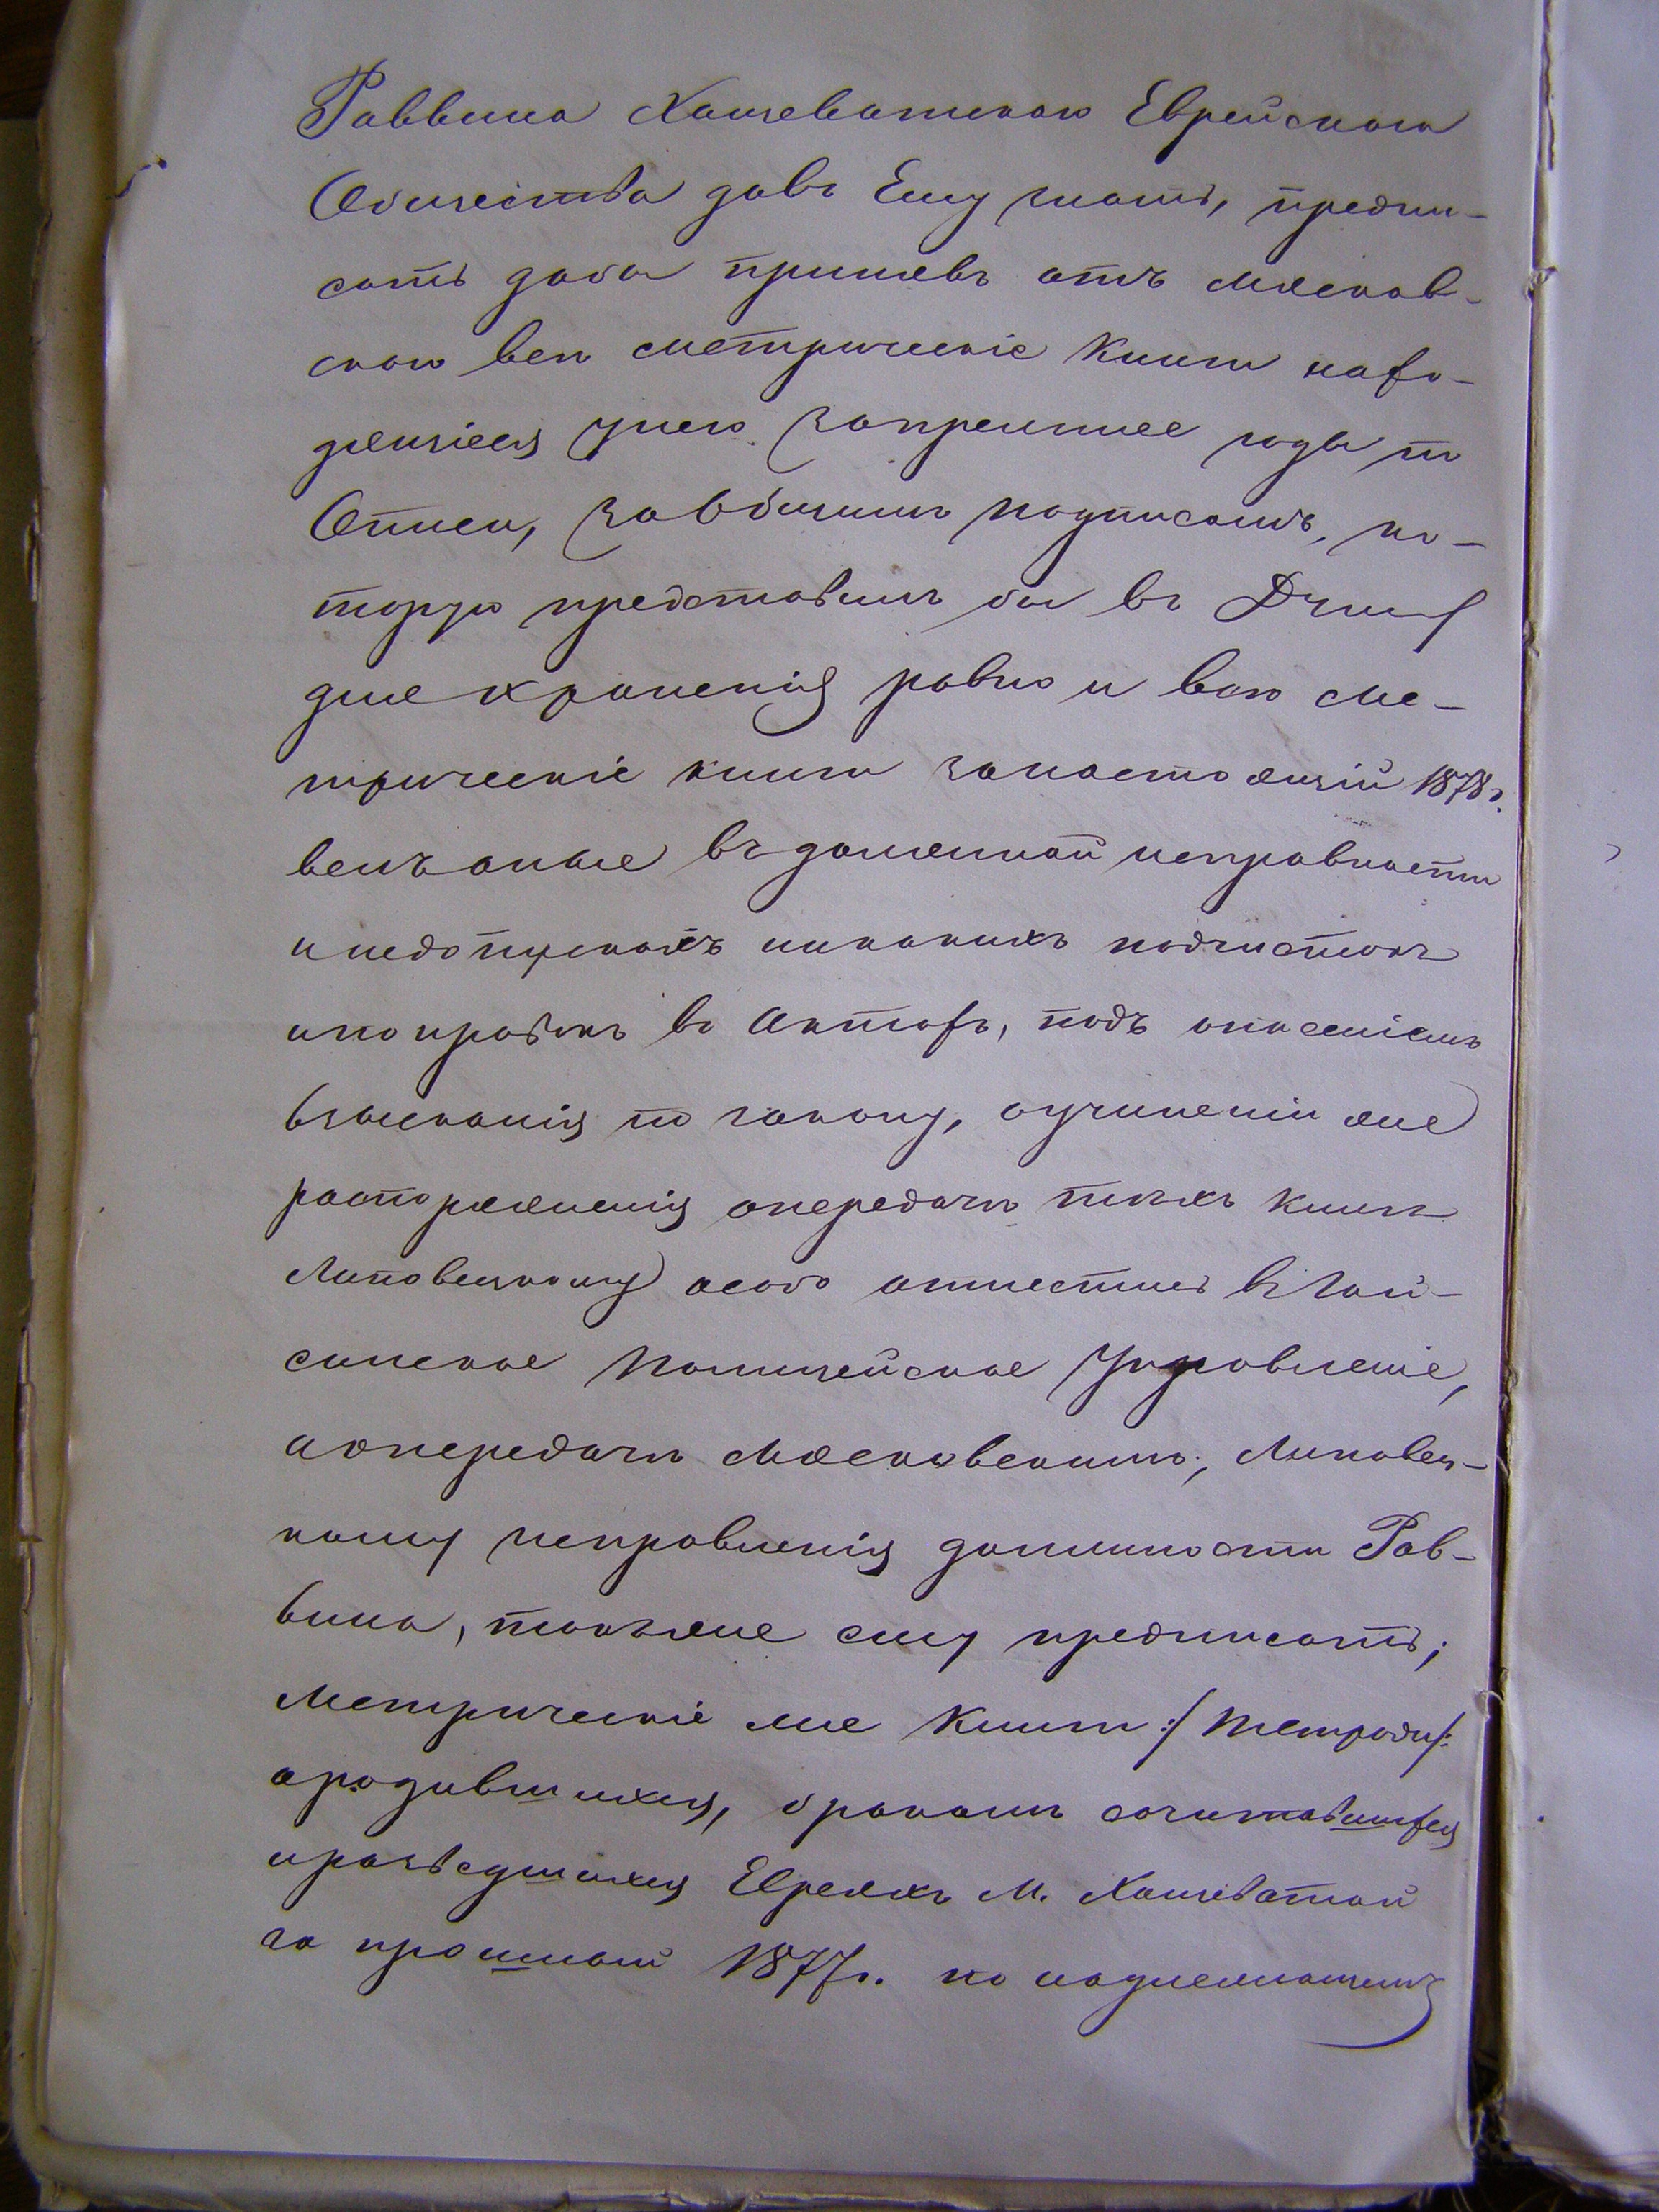 Раввина Хащеватскаго Еврейскаго
Общества давъ Ему знать, предпи-
сать дабы принявъ отъ Мясков-
скаго все метрическіе книги нахо-
дящіеся унего запрежнее года по
Описи, заобщимъ подписомъ, ко-
торую представилъ бы въ Думу
для храненія равно и всю ме-
трическіе книги занастоящій 1878г.
велъ оные въ должной исправности
инедопускалъ никакихъ подчистокъ
ипоправокъ въ Актахъ, подъ опасеніемъ
взысканія по закону, оучиненіи же
распоряженія опередачи тѣхъ книгъ
Липовецкому особо отнестись въ Гай-
синское Полицейское Управленіе,
аопередачи Мясковскимъ, Липовец-
кому исправленія должности Рав-
вина, такъже ему предписать;
Метрическіе же книги :/ тетради /:
ародившихся, бракомъ сочитавшихся
иразведшихся Евреяхъ М. Хащеватой
за прошлый 1877г. по надлежащемъ